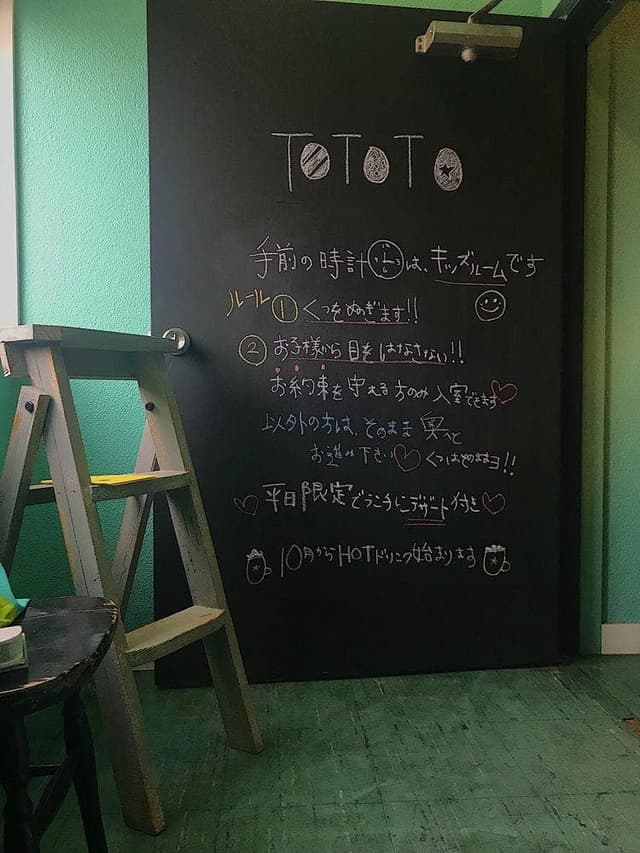 TOTOTO
手前の時計は、キッズルームです
ルール① くつをぬぎます!!
② お子様から目をはなさない!!
お約束を守る方のみ入室できます
以外の方は、そのまま奥へと
お進み下さい くつはそのままヨ!!
平日限定でランチにデザート付き
10月からHOTドリンク始まります